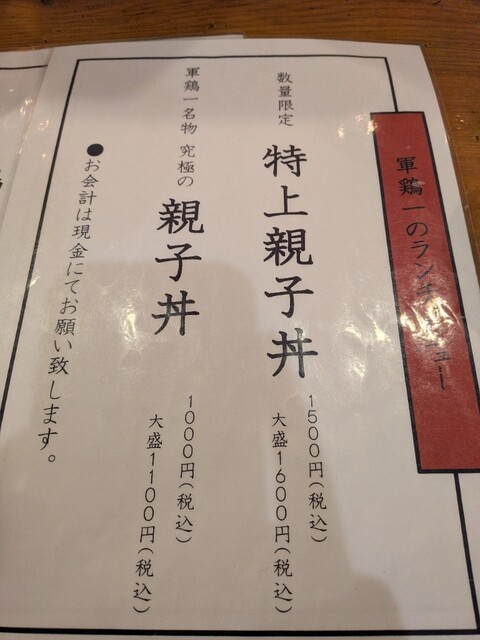 軍鶏一のランチメニュー
数量限定
特上親子丼
1500円(税込)
大盛1600円(税込)
軍鶏一名物 究極の
親子丼
1000円(税込)
大盛1100円(税込)
●お会計は現金にてお願い致します。